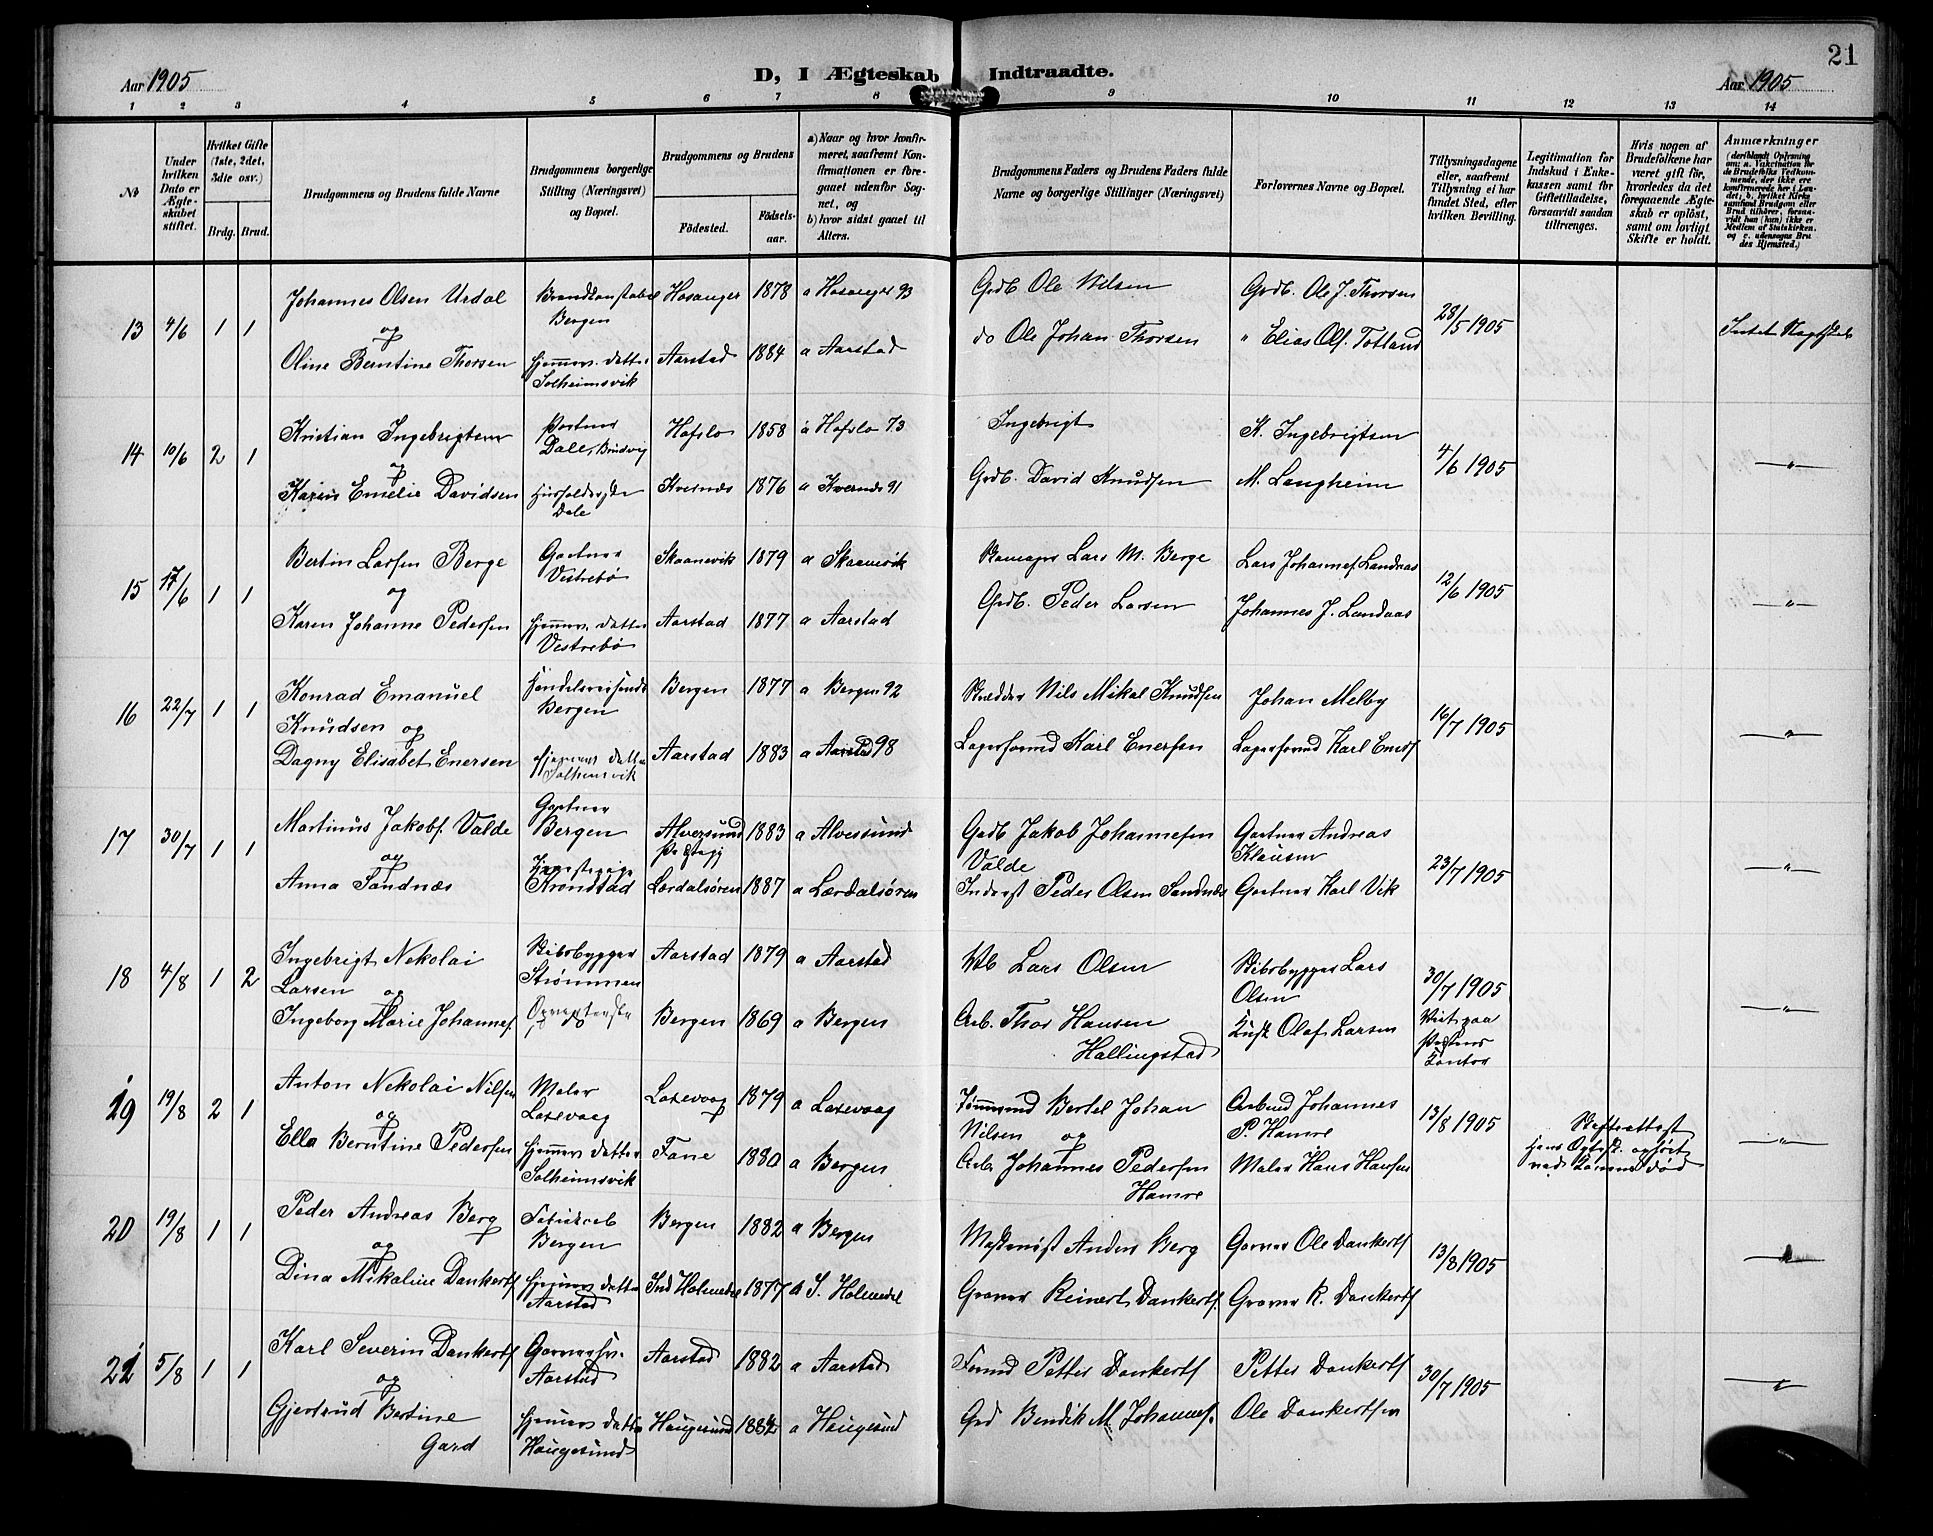 21
Aar 1905
D, I Ægteskab Indtraadte.
Aar 1905
1 2 3 4 5 6 7 8 9 10 11 12 13 14
No
Under hvilken Dato er Ægteskabet stiftet.
Hvilket Gifte (1ste, 2det, 3die osv.)
Brdg. Brud.
Brudgommens og Brudens fulde Navne
Brudgommens borgerlige Stilling (Næringsvei) og Bopæl.
Brudgommens og Brudens
Födested.
Födselsaar.
a) Naar og hvor konfirmeret, saafremt Konfirmationen er foregaaet udenfor Sognet, og
b) hvor sidst gaaet til Alters.
Brudgommens Faders og Brudens Faders fulde Navne og borgerlige Stillinger (Næringsvei)
Forlovernes Navne og Bopæl.
Tillysningsdagene eller, saafremt Tillysning ei har fundet Sted, efter hvilken Bevilling.
Legitimation for Indskud i Enkekassen samt for Giftetilladelse, forsaavidt saadan tiltrænges.
Hvis nogen af Brudefolkene har været gift før, hvorledes da det foregaaende Ægteskab er opløst, samt om lovligt Skifte er holdt.
Anmærkninger
(deriblandt Oplysning om: a. Vakcination for de Brudefolks Vedkommende, der ikke ere konfirmerede her i Landet; b. hvilket Kirkesamfund Brudgom eller Brud tilhører, forsaavidt han (hun) ikke er Medlem af Statskirken. og c. udensogns Brudes Hjemsted.)
13 4/6 1 1 Johannes Olsen Urdal Brandkonstabel Bergen Hosanger 1878 a Hosanger 93 Grdb Ole Nilsen Grdb. Ole J. Thorsen 28/5 1905 Intet Slagtskab
og
Oline Berntine Thorsen Hjemmev. datter Solheimsvik Aarstad 1884 a Aarstad do Ole Johan Thorsen " Elias Ols. Totland
14 10/6 2 1 Kristian Ingebrigtsen Portner Dale, Brudvig Hafslo 1858 a Hafslo 73 Ingebrigt K. Ingebrigtsen 4/6 1905 "
og
Karen Emelie Davidsen Dale Kvernes 1876 a Kvernes 91 Grdb. David Knudsen M. Langheim
15 17/6 1 1 Bertin Larsen Berge Gartner Vestrebø Skaanevik 1879 a Skaanevik Lars M. Berge Lars Johannes Landaas 12/6 1905 "
og
Karen Johanne Pedersen Hjemmev. datter Vestrebø Aarstad 1877 a Aarstad Grdb. Peder Larsen Johannes J. Landaas
16 22/7 1 1 Konrad Emanuel Handelsreisende Bergen Bergen 1877 a Bergen 92 Skrædder Nils Mikal Knudsen Johan Melby 16/7 1905 "
Knudsen og
Dagny Elisabet Enersen Hjemmev. datter Solheimsvik Aarstad 1883 a Aarstad 98 Lagerformd Karl Enersen Lagerformd Karl Eners
17 30/7 1 1 Martinus Jakobs. Valde Gartner Bergen Alversund 1883 a Alversund Grdb Jakob Johannesen Valde Gartner Andreas Klausen 23/7 1905 "
og
Anna Sandnæs Kronstad Lærdalsøren 1887 a Lærdalsøren Inderst Peder Olsen Sandnæs Gartner Karl Vik
18 4/8 1 2 Ingebrigt Nekolai Skibsbygger Strømmen Aarstad 1879 a Aarstad Lars Olsen Skibsbygger Lars Olsen 30/7 1905 "
Larsen og
Ingeborg Marie Johannes. Bergen 1869 a Bergen Arb. Thor Hansen Hallingstad Kusk Olaf Larsen Viet paa Kontor
19 19/8 2 1 Anton Nekolai Nilsen Maler Laxevaag Laxevaag 1879 a Laxevaag Tømmermd Bertel Johan Nilsen og Arbmd Johannes P. Hamre 13/8 1905 Skifteattest "
og
Ella Berntine Pedersen Hjemmev. datter Solheimsvik Fane 1880 a Bergen Arb. Johannes Pedersen Hamre Maler Hans Hansen hans Ægtesk. ophørt ved Konens død
20 19/8 1 1 Peder Andreas Berg Bergen Bergen 1882 a Bergen Anders Berg Garver Ole Dankerts 13/8 1905 "
og
Dina Mikaline Dankerts Hjemmev. datter Aarstad Ind Holmedal 1877 a I. Holmedal Garver Reinert Dankerts. Garver R. Dankerts
21 5/8 1 1 Karl Severin Dankerts Garversv. Aarstad Aarstad 1882 a Aarstad Formd Petter Dankerts Petter Dankerts 30/7 1905 "
og
Gjertrud Bertine Hjemmev. datter Haugesund Haugesund 1882 a Haugesund Grd Bendik M. Johannes. Ole Dankertsen
Gard